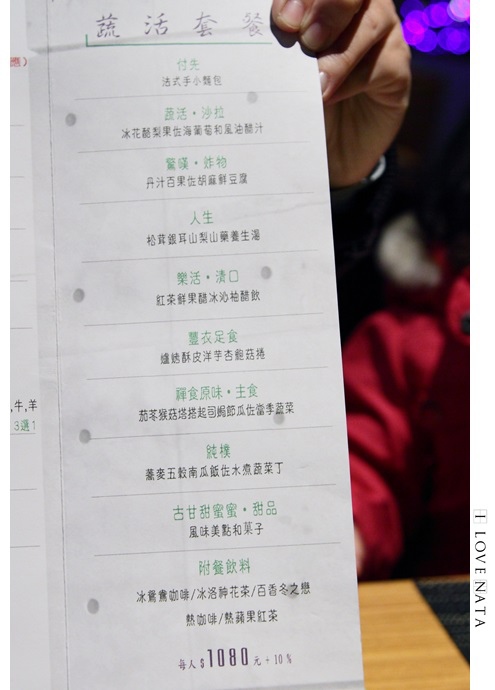 蔬活套餐
付先
法式手小麵包
蔬活・沙拉
冰花酪梨果佐海葡萄和風油醋汁
驚嘆・炸物
丹汁百果佐胡麻鮮豆腐
人生
松茸銀耳山梨山藥養生湯
樂活・清口
紅茶鮮果醋冰沁柚醋飲
豐衣足食
爐烤酥皮洋芋杏鮑菇捲
禪食原味・主食
茄苳猴菇塔搭起司焗節瓜佐當季蔬菜
純樸
蕎麥五穀南瓜飯佐水煮蔬菜丁
古甘甜蜜蜜・甜品
風味美點和菓子
附餐飲料
冰鴛鴦咖啡/冰洛神花茶/百香冬之戀
熱咖啡/熱蘋果紅茶
每人$1080元+10%
應)
,牛,羊
3選1
I LOVE NATA